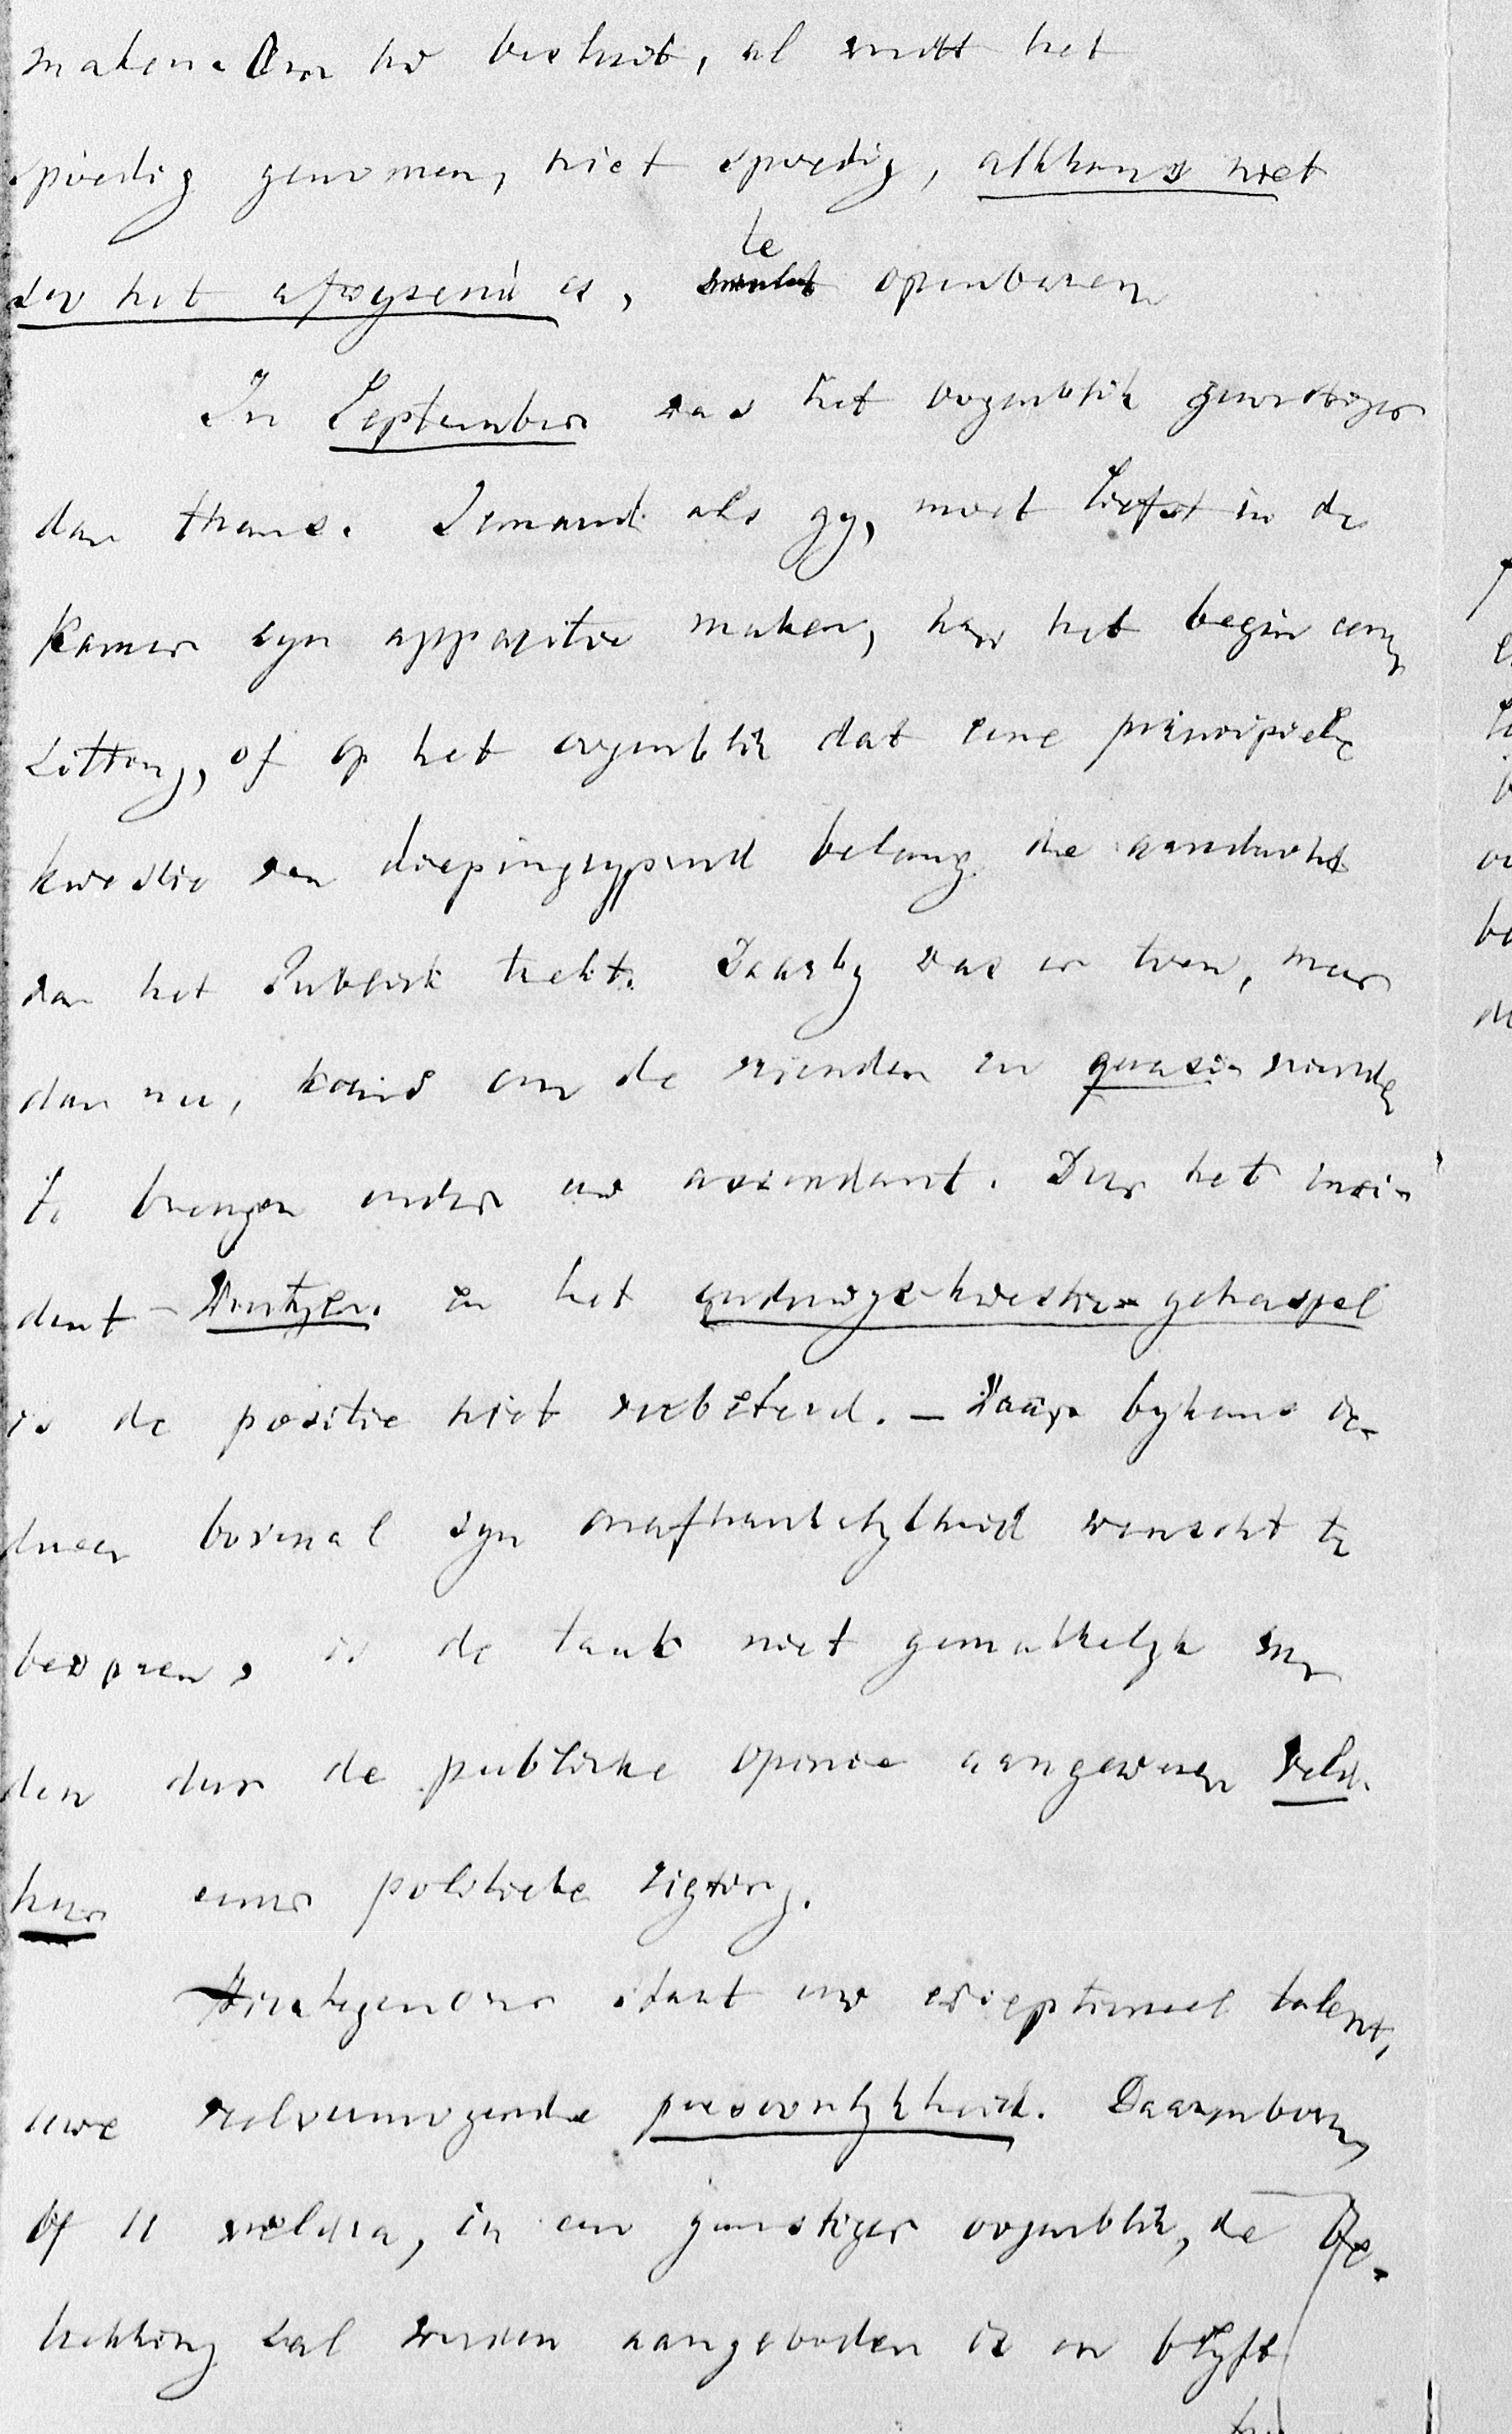 maken. Om Uw besluit, al wordt het
spoedig genomen, niet spoedig, althans niet
zoo het afwyzend is, te openbaren
In September was het oogenblik gunstiger
dan thans. Iemand als gy, moet liefst in de
Kamer zyn apparitie maken, her het begin eener
zitting, of op het oogenblik dat eene principiele
kwestie van diepingrypend belang de aandacht
van het Publiek trekt. Daarby was er toen, meer
dan nu, kans om de vrienden en quasi-vrienden
te brengen onder uw ascendant. Door het inci-
dent-Wintgens en het onderwys-kwestie-gehaspel
is de positie niet verbeterd. — Waar bykans ie-
dereen bovenal zyn onafhankelykheid wenscht te
bewaren, is de taak niet gemakkelyk van
den door de publieke opinie aangewezen veld-
heer eener politieke rigting.
Hiertegenover staat uw exceptioneel talent,
uwe veelvermogende persoonlykheid. Daarenboven,
of U weldra, in een gunstiger oogenblik, de be-
trekking zal worden aangeboden is en blyft